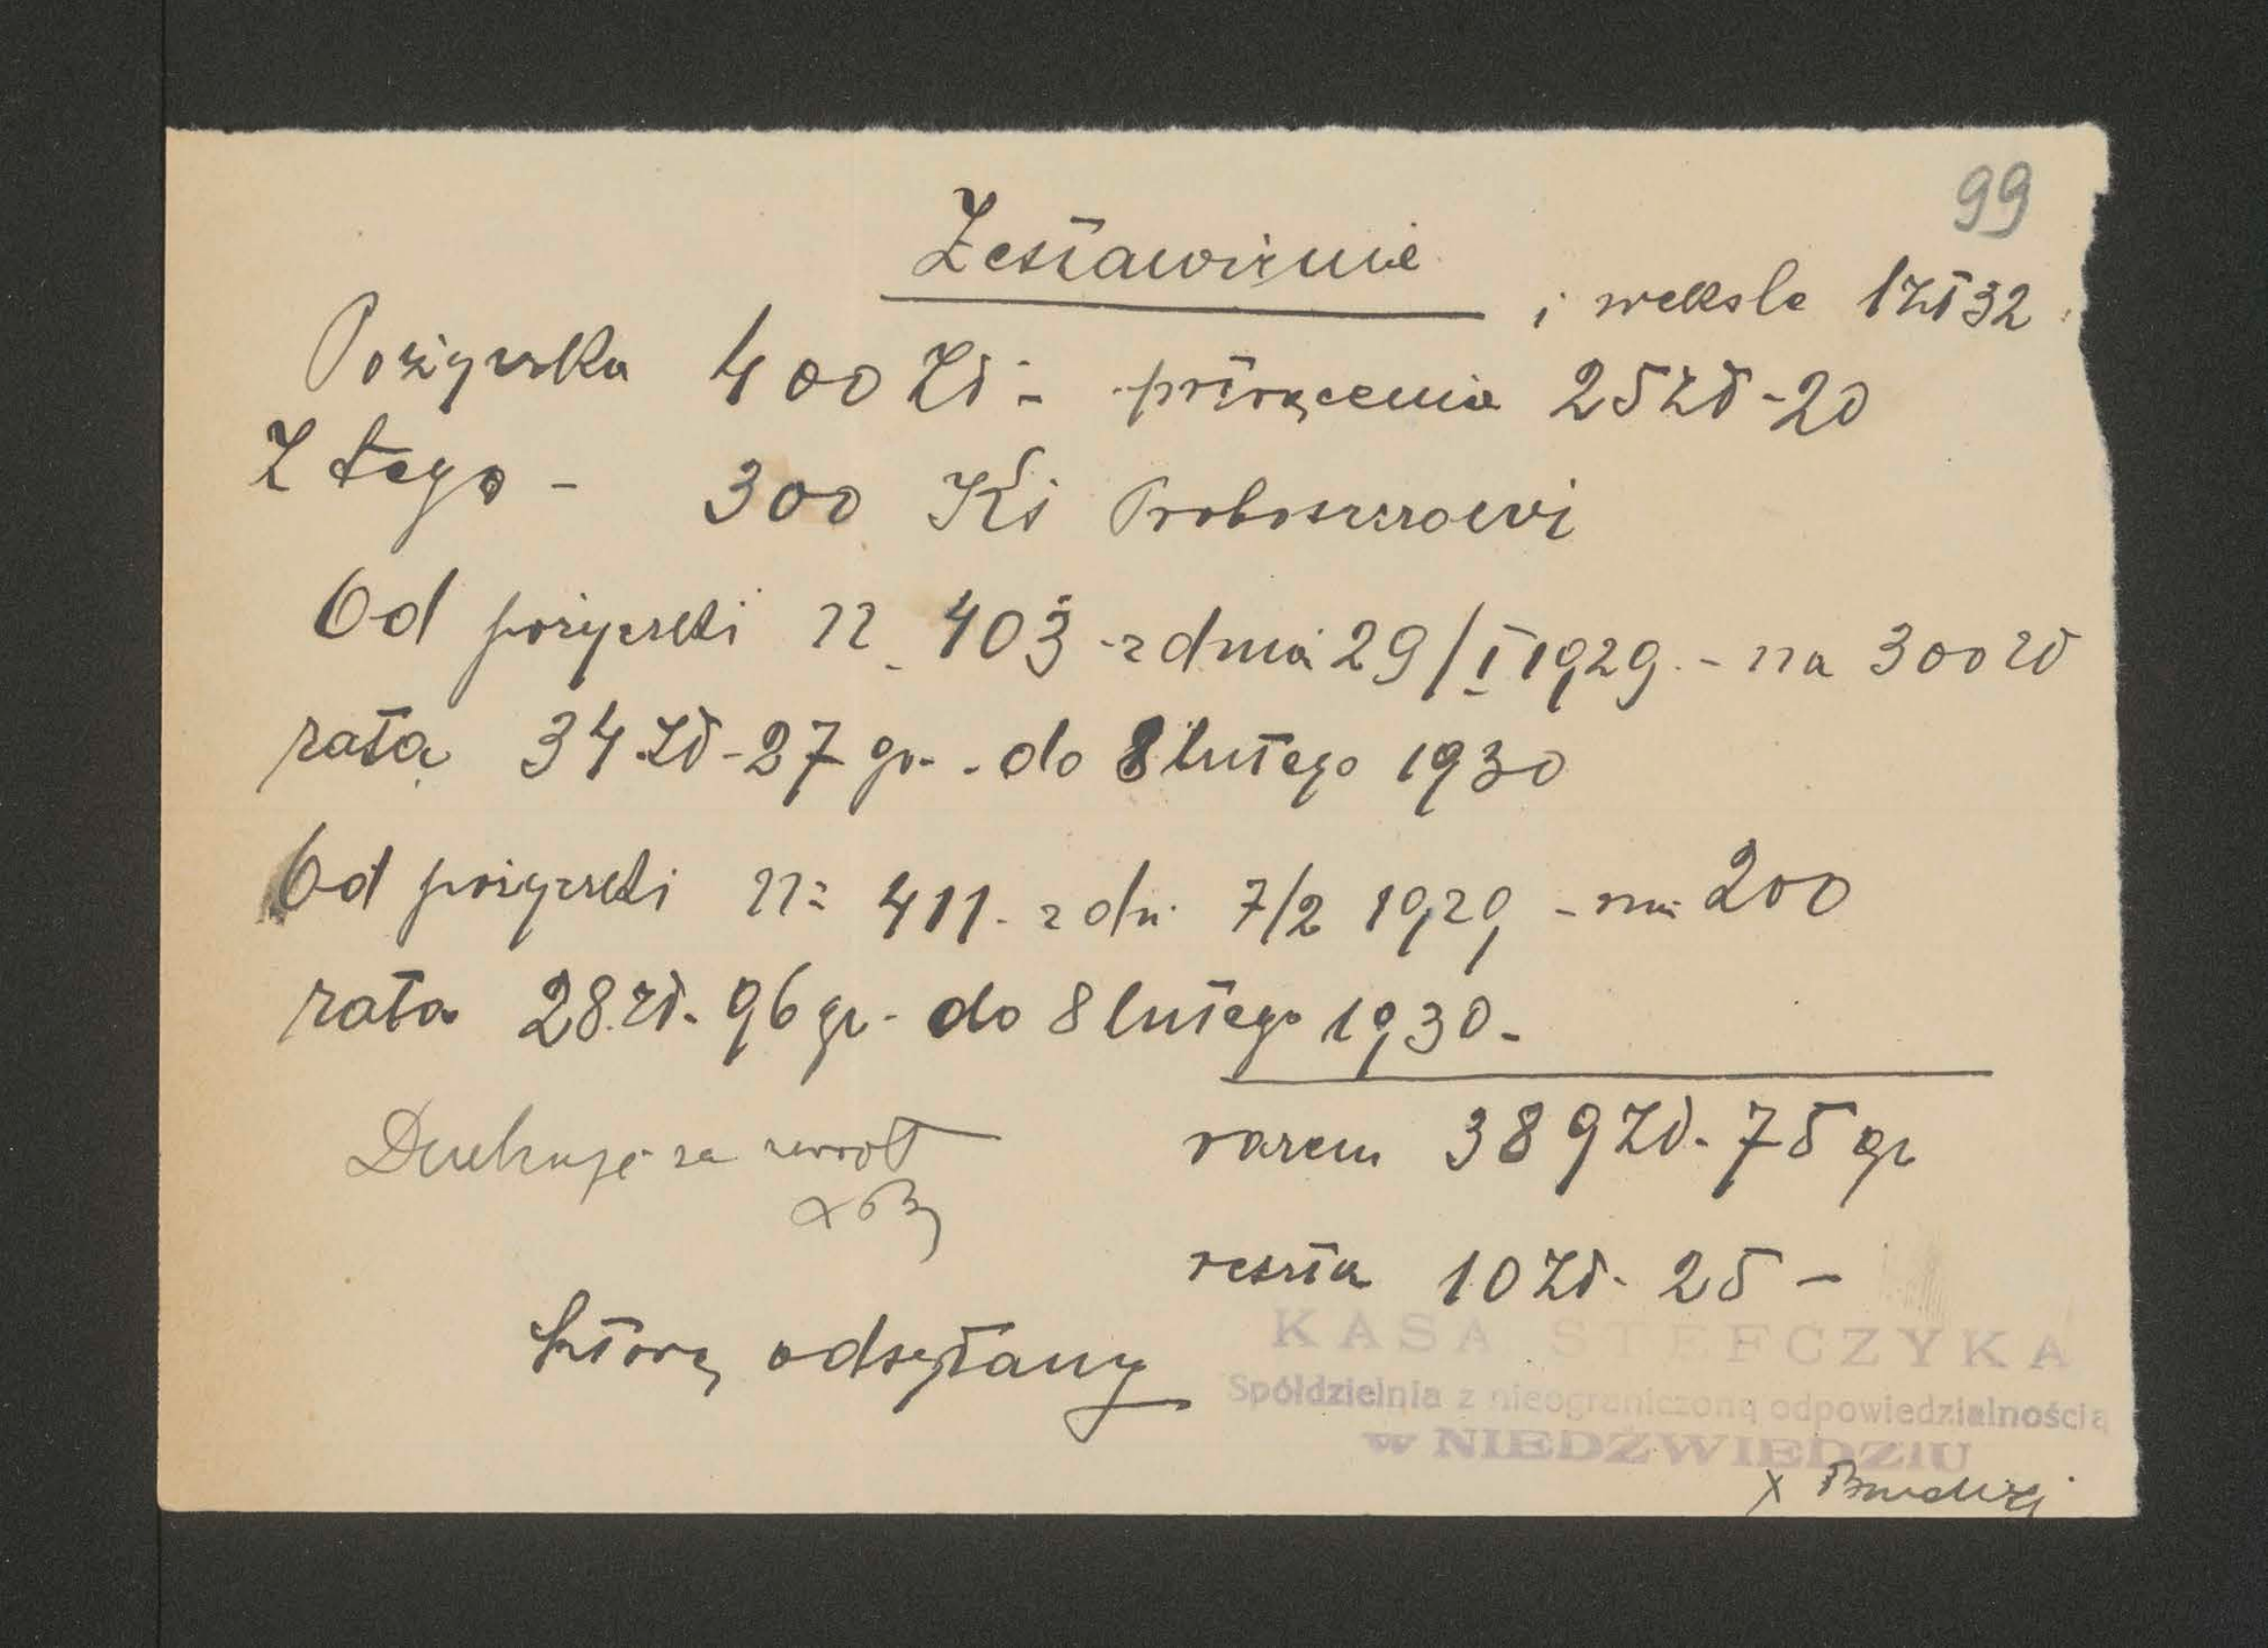 99
Zestawienie
i weksle 1 zł 32
Pożyczka 400 Zł - potrącenia 25 zł - 20
Z tego - 300 Ks Proboszczowi
Od pożyczki n. 403 - z dnia 29/I 1929. - na 300 zł
rata 34 zł - 27 gr. - do 8 lutego 1930
Od pożyczki n: 411. z dn. 7/2 1929 - na 200
rata 28. zł. 96 gr. do 8 lutego 1930. -
razem 389 Zł. 75 gr
Dziękuję za zwrot
reszta 10 Zł. 25 -
którą odsyłamy
KASA STEFCZYKA
Spółdzielnia z nieograniczoną odpowiedzialnością
w NIEDŹWIEDZIU